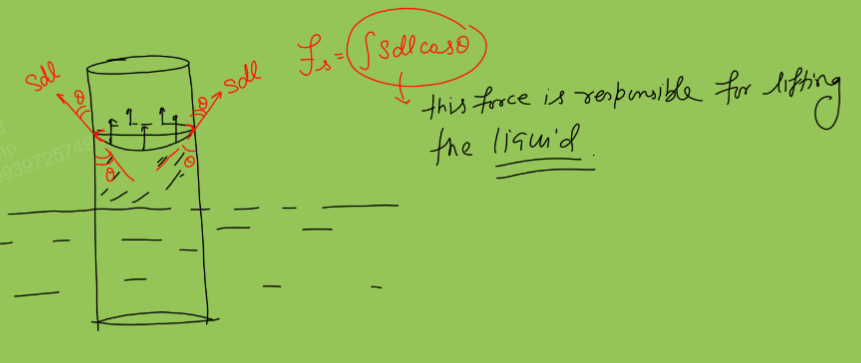 Sdl
θ
θ
Sdl
θ
θ
Fs = ∫Sdl cosθ
this force is responsible for lifting
the liquid.